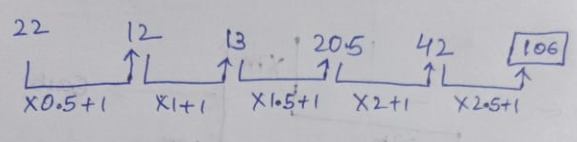 22 12 13 20.5 42 106
×0.5+1 ×1+1 ×1.5+1 ×2+1 ×2.5+1